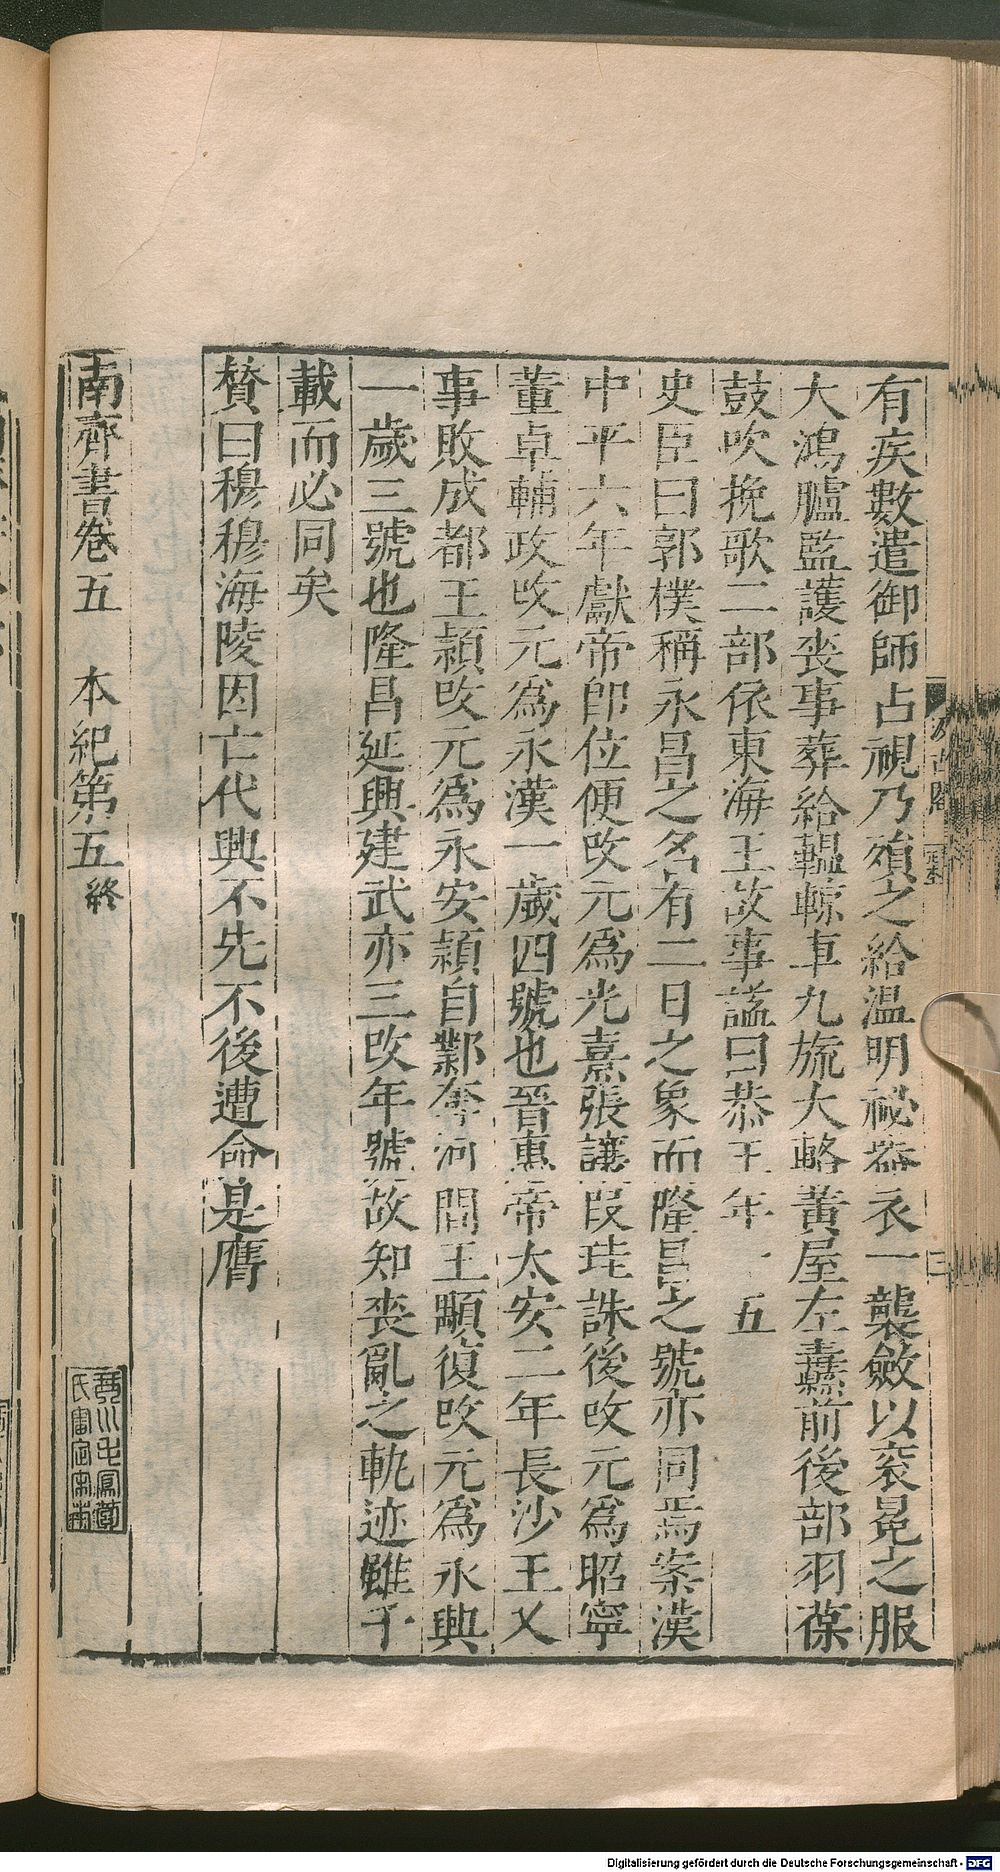 有疾數遣御師占視乃殞之給温明祕器衣一襲斂以衮冕之服
大鴻臚監護喪事葬給轀輬車九旒大輅黃屋左纛前後部羽葆
鼓吹挽歌二部依東海王故事謚曰恭王年十五
史臣曰郭樸稱永昌之名有二日之象而隆昌之號亦同焉案漢
中平六年獻帝卽位便改元爲光熹張讓段珪誅後改元爲昭寧
董卓輔政改元爲永漢一歲四號也晉惠帝太安二年長沙王乂
事敗成都王穎改元爲永安穎自鄴奪河間王顒復改元爲永興
一歲三號也隆昌延興建武亦三改年號故知喪亂之軌迹雖千
載而必同矣
贊曰穆穆海陵因亡代興不先不後遭命是膺
南齊書卷五　本紀第五終
琴川毛鳳苞
氏審定宋本
Digitalisierung gefördert durch die Deutsche Forschungsgemeinschaft - DFG